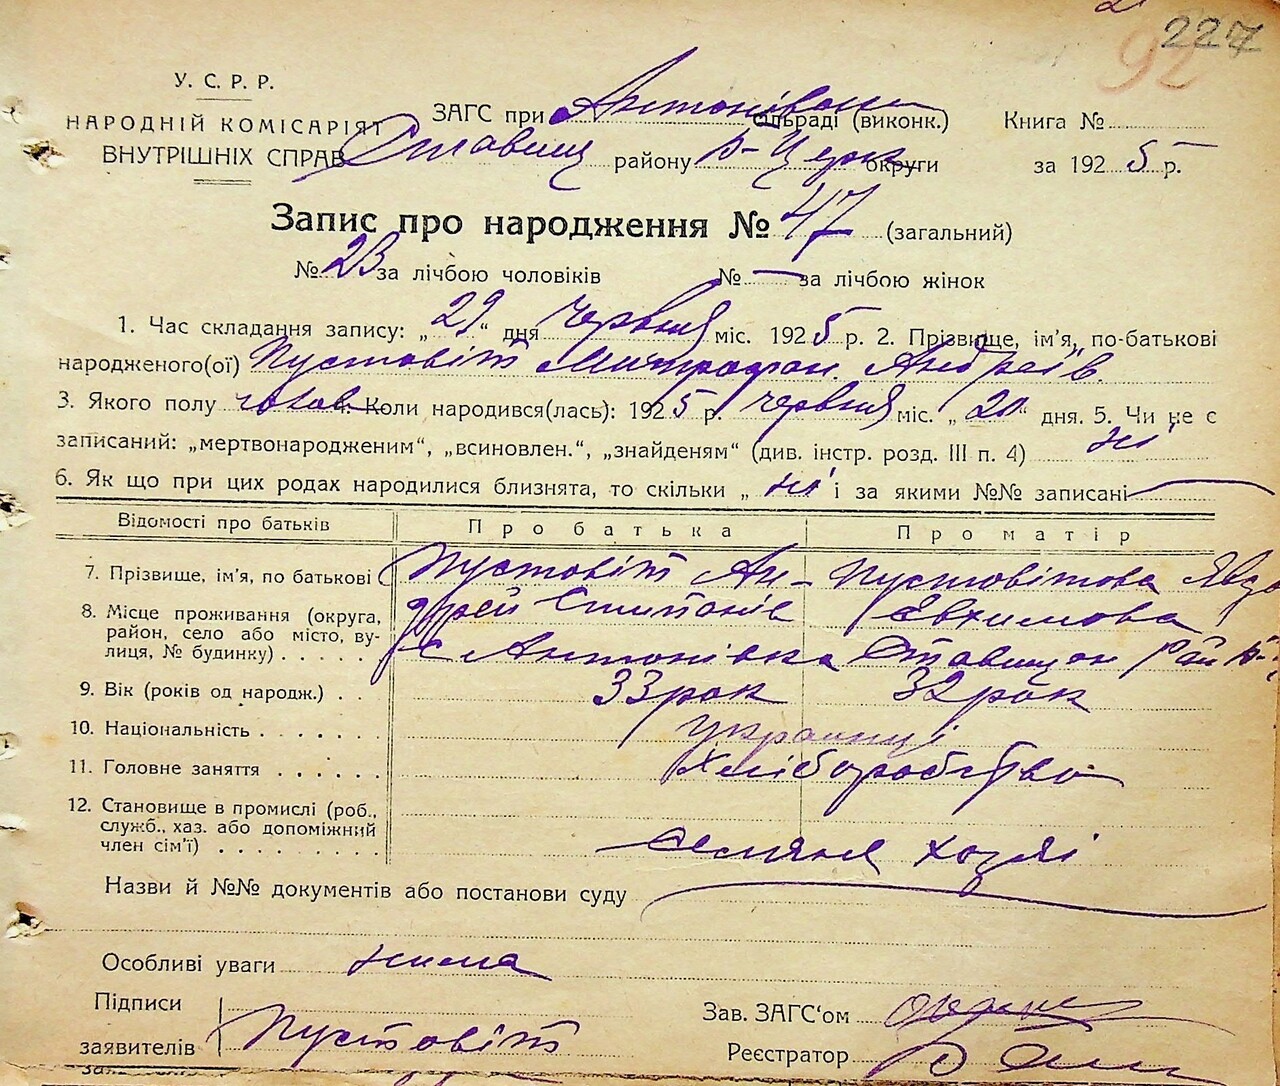 227
92
У. С. Р. Р.
НАРОДНІЙ КОМІСАРІЯТ
ВНУТРІШНІХ СПРАВ
ЗАГС при Антонівськ сільраді (виконк.) Книга №
Ставищ району Б-Церк округи за 1925 р.
Запис про народження № 47 (загальний)
№ 23 за лічбою чоловіків № — за лічбою жінок
1. Час складання запису: „29“ дня червня міс. 1925 р. 2. Прізвище, ім'я, по-батькові
народженого(ої) Пустовіт Митрофан Андреїв.
3. Якого полу чолов 4. Коли народився(лась): 1925 р. червня міс. „20“ дня. 5. Чи не є
записаний: „мертвонародженим“, „всиновлен.“, „знайденям“ (див. інстр. розд. III п. 4) ні
6. Як що при цих родах народилися близнята, то скільки „ні і за якими №№ записані —
Відомості про батьків Про батька Про матір
7. Прізвище, ім'я, по батькові Пустовіт Ан- Пустовітова Явдо
8. Місце проживання (округа, дрей Степанів Євхимова
район, село або місто, ву-
лиця, № будинку) с Антонівка Ставищан рай Б-
9. Вік (років од народж.) 33 рок 32 рок
10. Національність украинці
11. Головне заняття Хліборобство
12. Становище в промислі (роб.,
служб., хаз. або допоміжний
член сім'ї) хозяї
Назви й №№ документів або постанови суду
Особливі уваги нима
Підписи
заявителів Пустовіт
Зав. ЗАГС‘ом
Реєстратор